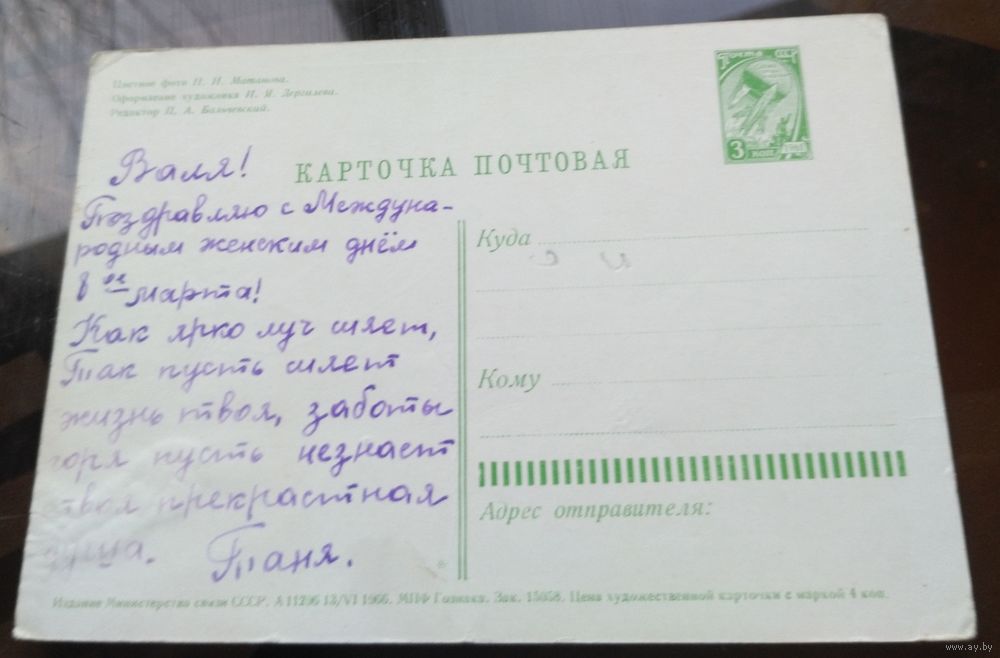 Цветное фото Н. Н. Матанова.
Оформление художника И. Я. Дергилева.
Редактор П. А. Бальчевский.
Почта СССР
3 коп
КАРТОЧКА ПОЧТОВАЯ
Валя!
Поздравляю с Междуна-
родным женским днём
8 ое марта!
Как ярко луч сияет,
Так пусть сияет
жизнь твоя, заботы
горя пусть незнает
твоя прекрастная
душа. Таня.
Куда
Кому
Адрес отправителя:
Издание Министерства связи СССР. А 11296 13/VI 1966. МПФ Гознака. Зак. 15058. Цена художественной карточки с маркой 4 коп.
www.ay.by